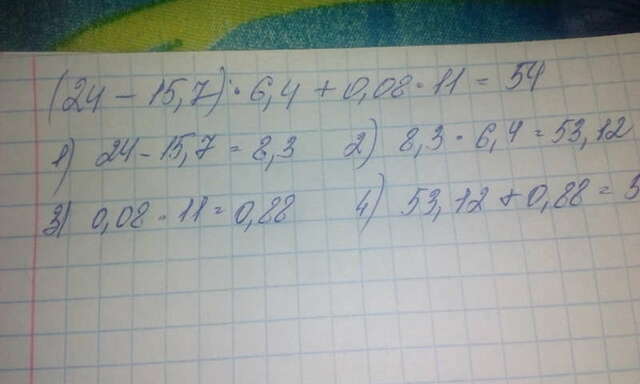 (24 - 15,7) · 6,4 + 0,08 · 11 = 54
1) 24 - 15,7 = 8,3 2) 8,3 · 6,4 = 53,12
3) 0,08 · 11 = 0,88 4) 53,12 + 0,88 = 5